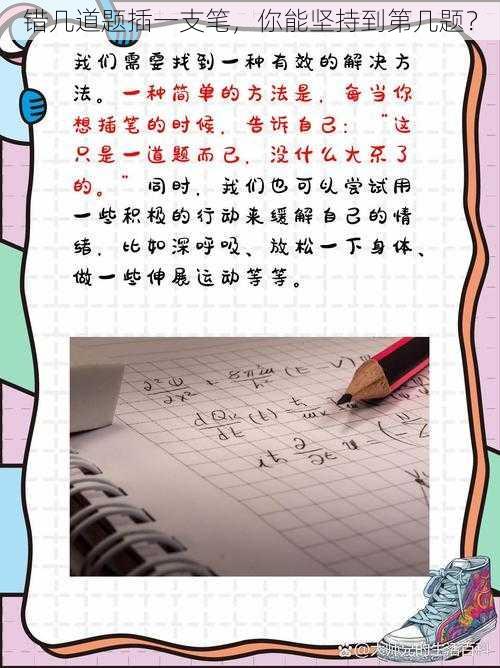 错几道题插一支笔，你能坚持到第几题？
我们需要找到一种有效的解决方
法。一种简单的方法是，每当你
想插笔的时候，告诉自己：“这
只是一道题而已，没什么大不了
的。”同时，我们也可以尝试用
一些积极的行动来缓解自己的情
绪，比如深呼吸、放松一下身体、
做一些伸展运动等等。
@大师兄的生活百科